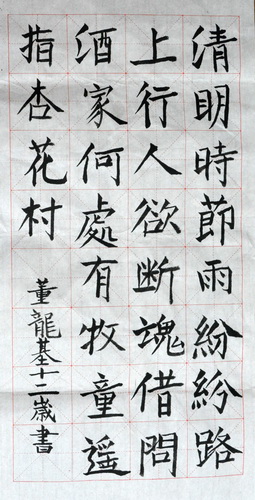 清明時節雨紛紛路
上行人欲断魂借問
酒家何處有牧童遥
指杏花村
董龍基十二歲書